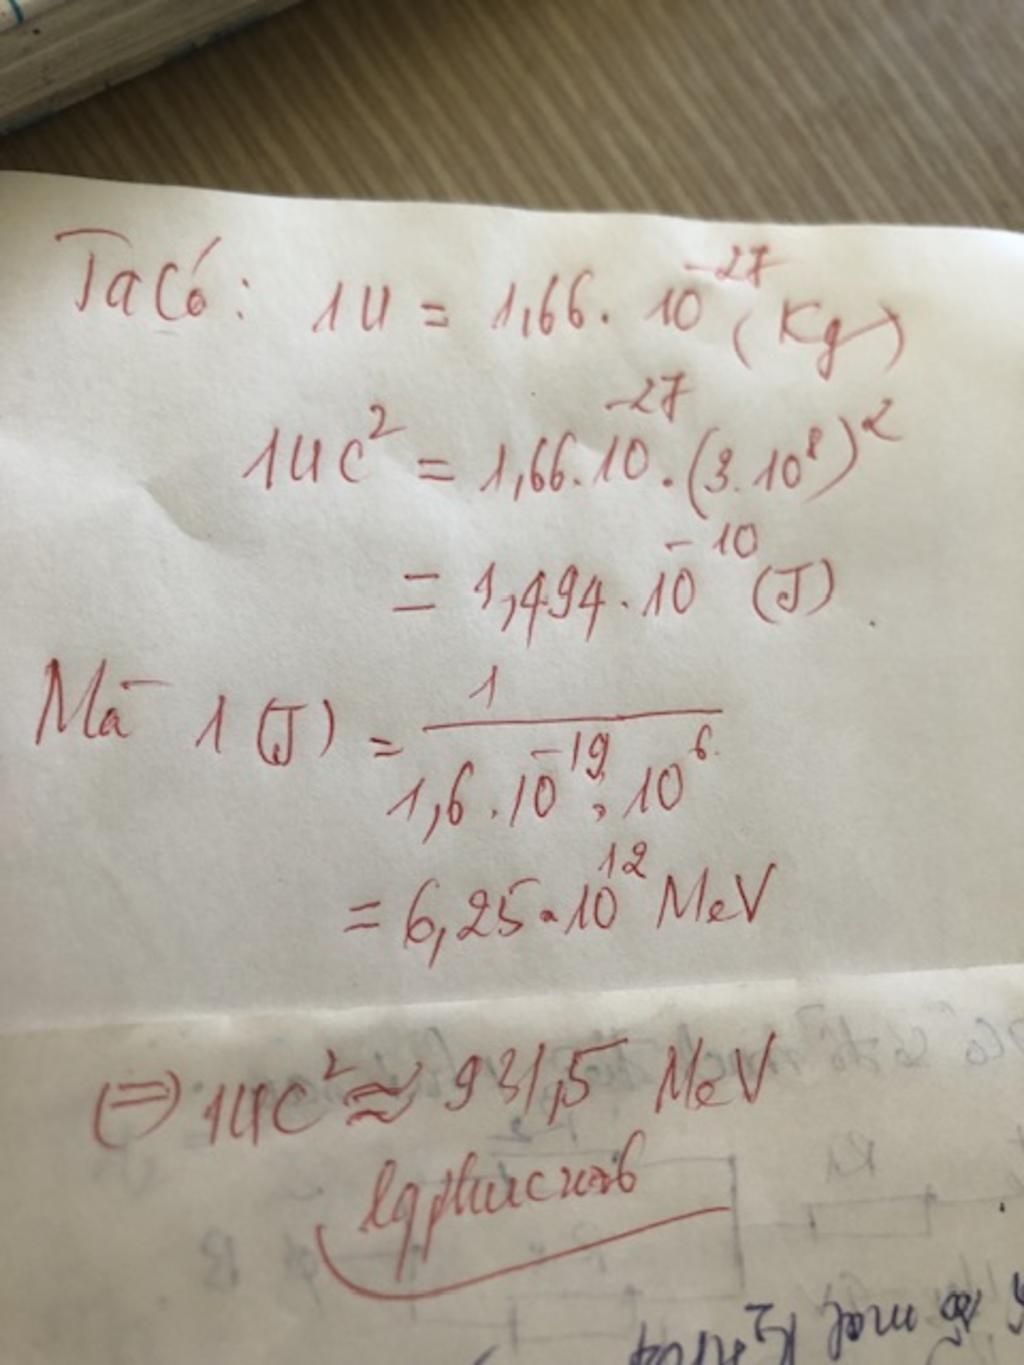 Ta có: 1u = 1,66. 10^-27 (Kg)
1uc² = 1,66.10^-27.(3.10^8)²
= 1,494.10^-10 (J)
Mà 1 (J) = 1 / (1,6.10^-19.10^6)
= 6,25.10^12 MeV
(=) 1uc² ≈ 931,5 MeV